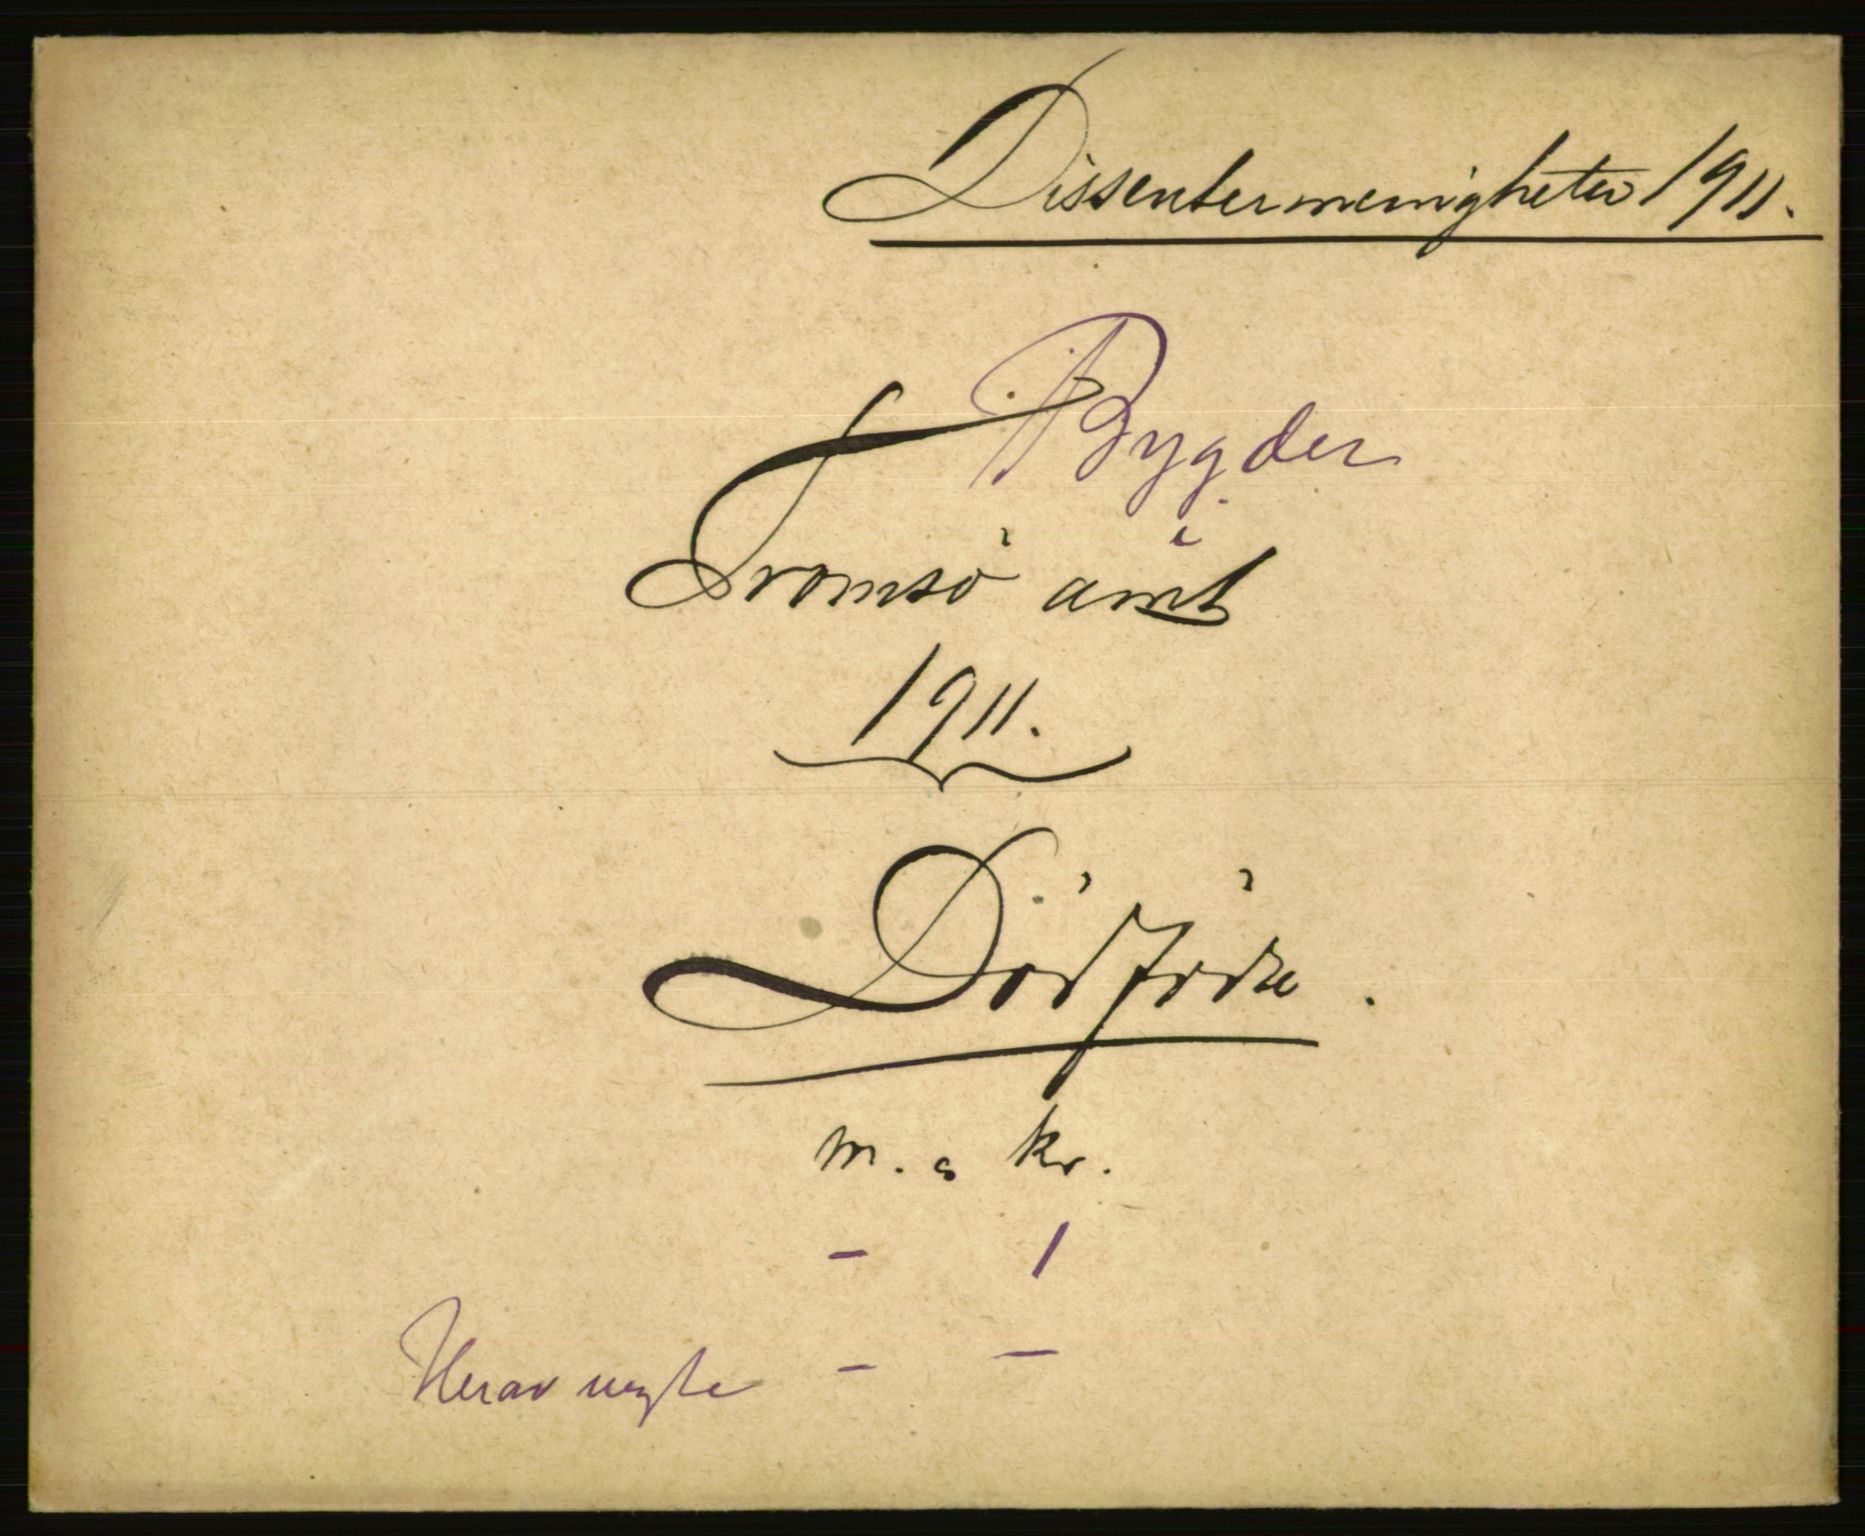 Dissentermenigheter 1911.
Bygder
i
Tromsö amt
1911.
Dödfödte.
m. o kr.
- 1
Herav uegte - -